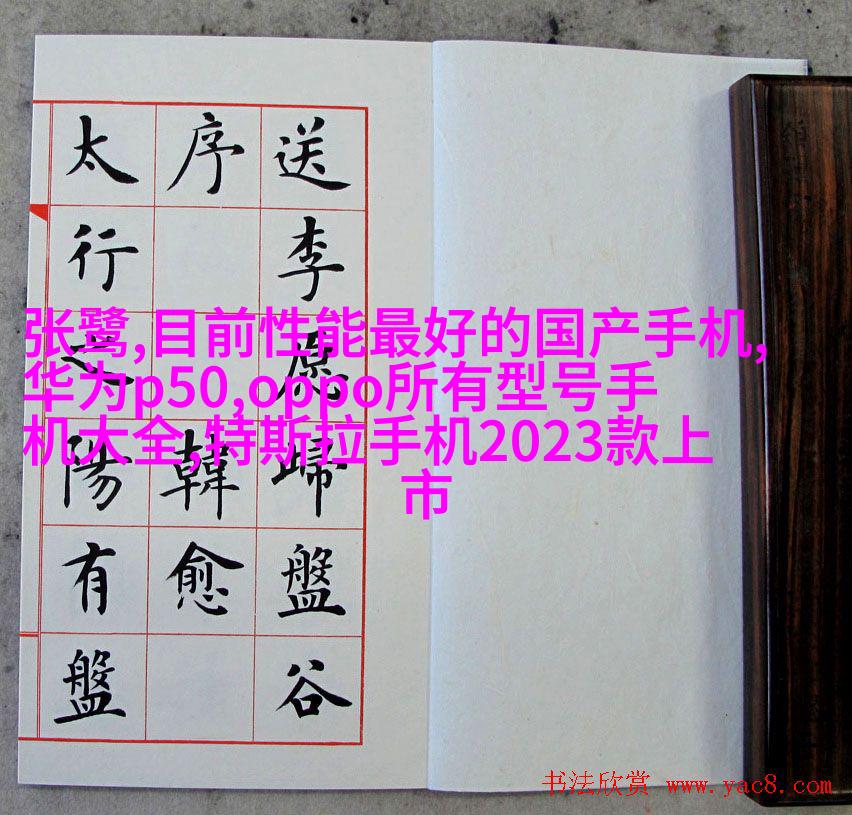 送李愿歸盤谷
序 韓愈
太行之陽有盤
张鹭,目前性能最好的国产手机,
华为p50,oppo所有型号手
机大全,特斯拉手机2023款上
市
书法欣赏 www.yac8.com